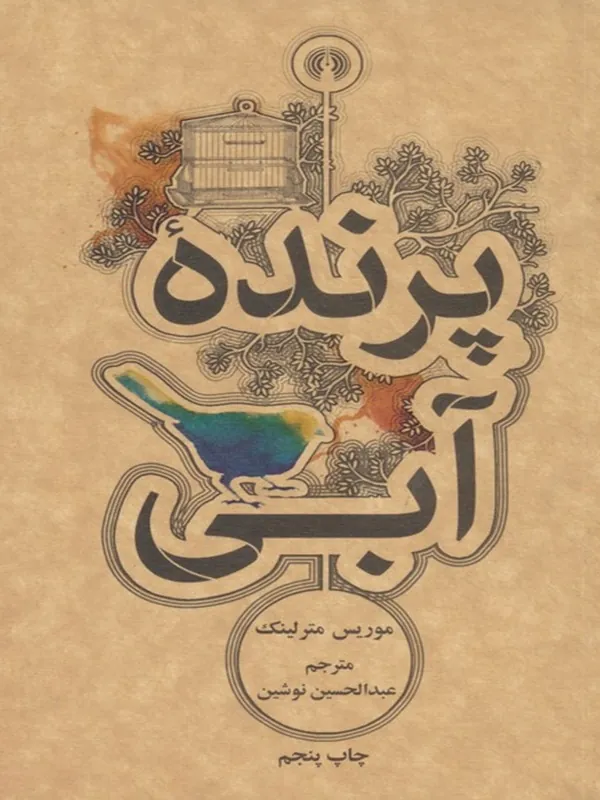 پرندهٔ
آبی
موریس مترلینک
مترجم
عبدالحسین نوشین
چاپ پنجم